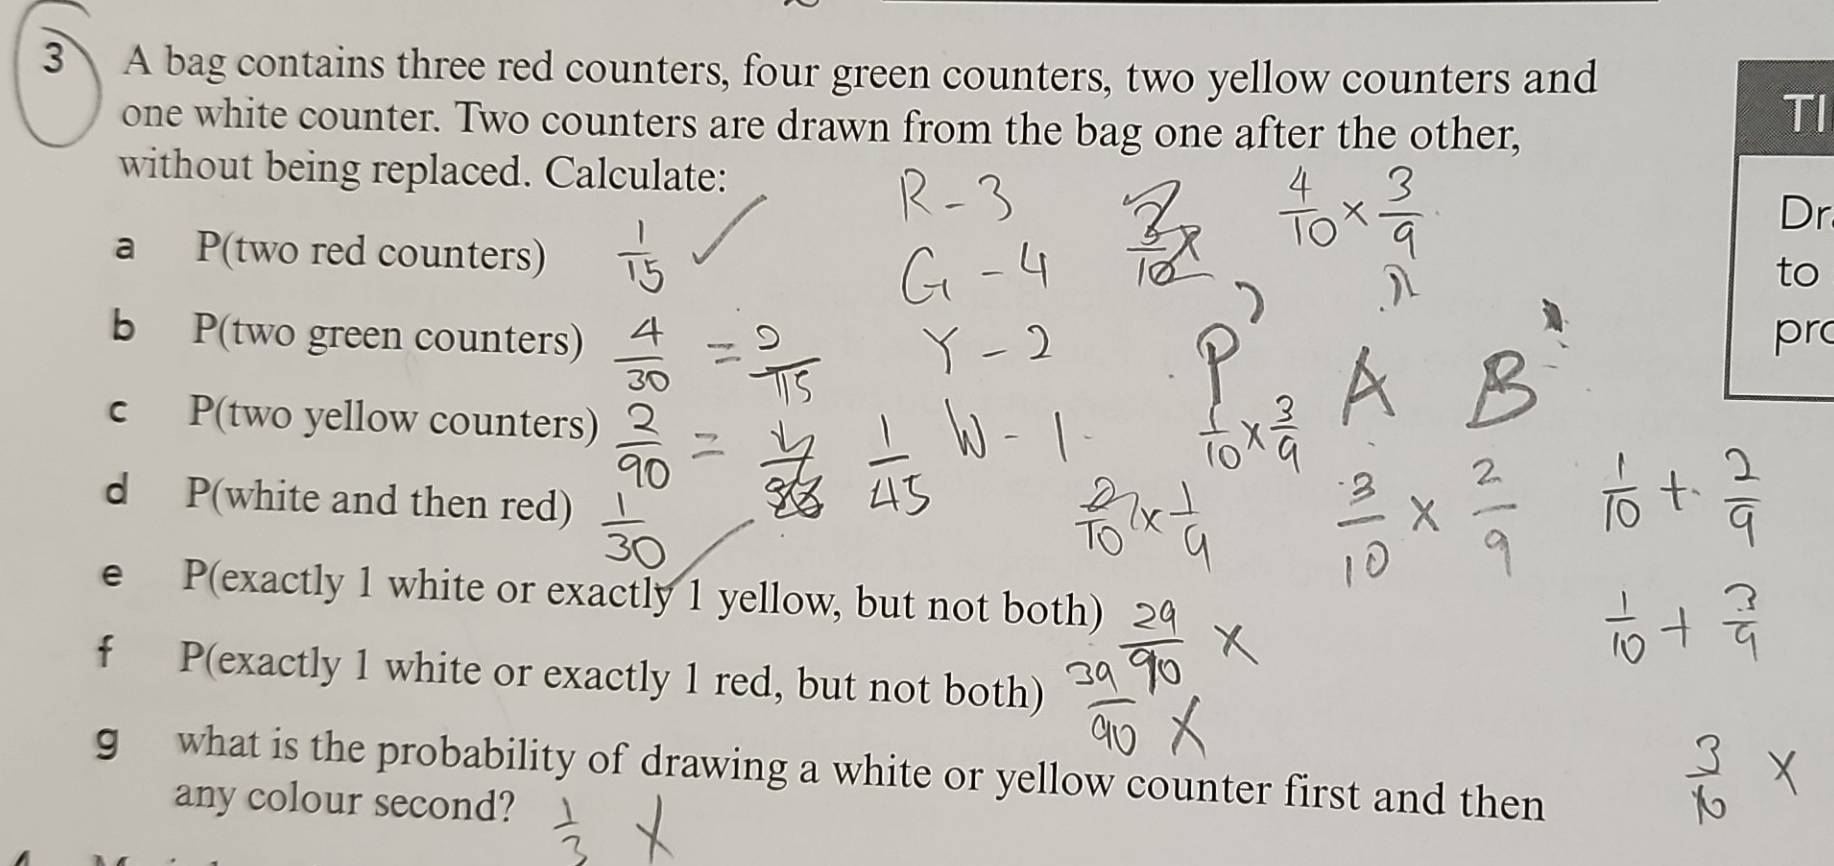 3 A bag contains three red counters, four green counters, two yellow counters and
one white counter. Two counters are drawn from the bag one after the other,
without being replaced. Calculate:
a P(two red counters) 1/15 ✓
b P(two green counters) 4/30 = 2/15
c P(two yellow counters) 2/90 = 1/45
d P(white and then red) 1/30 ✓
e P(exactly 1 white or exactly 1 yellow, but not both) 29/90 X
f P(exactly 1 white or exactly 1 red, but not both) 39/90 X
g what is the probability of drawing a white or yellow counter first and then
any colour second? 1/3 X
R - 3
G - 4
Y - 2
W - 1
4/10 × 3/9
P A B
1/10 × 3/9
2/10 × 1/9
3/10 × 2/9
1/10 + 2/9
1/10 + 3/9
TI
Dr
to
pro